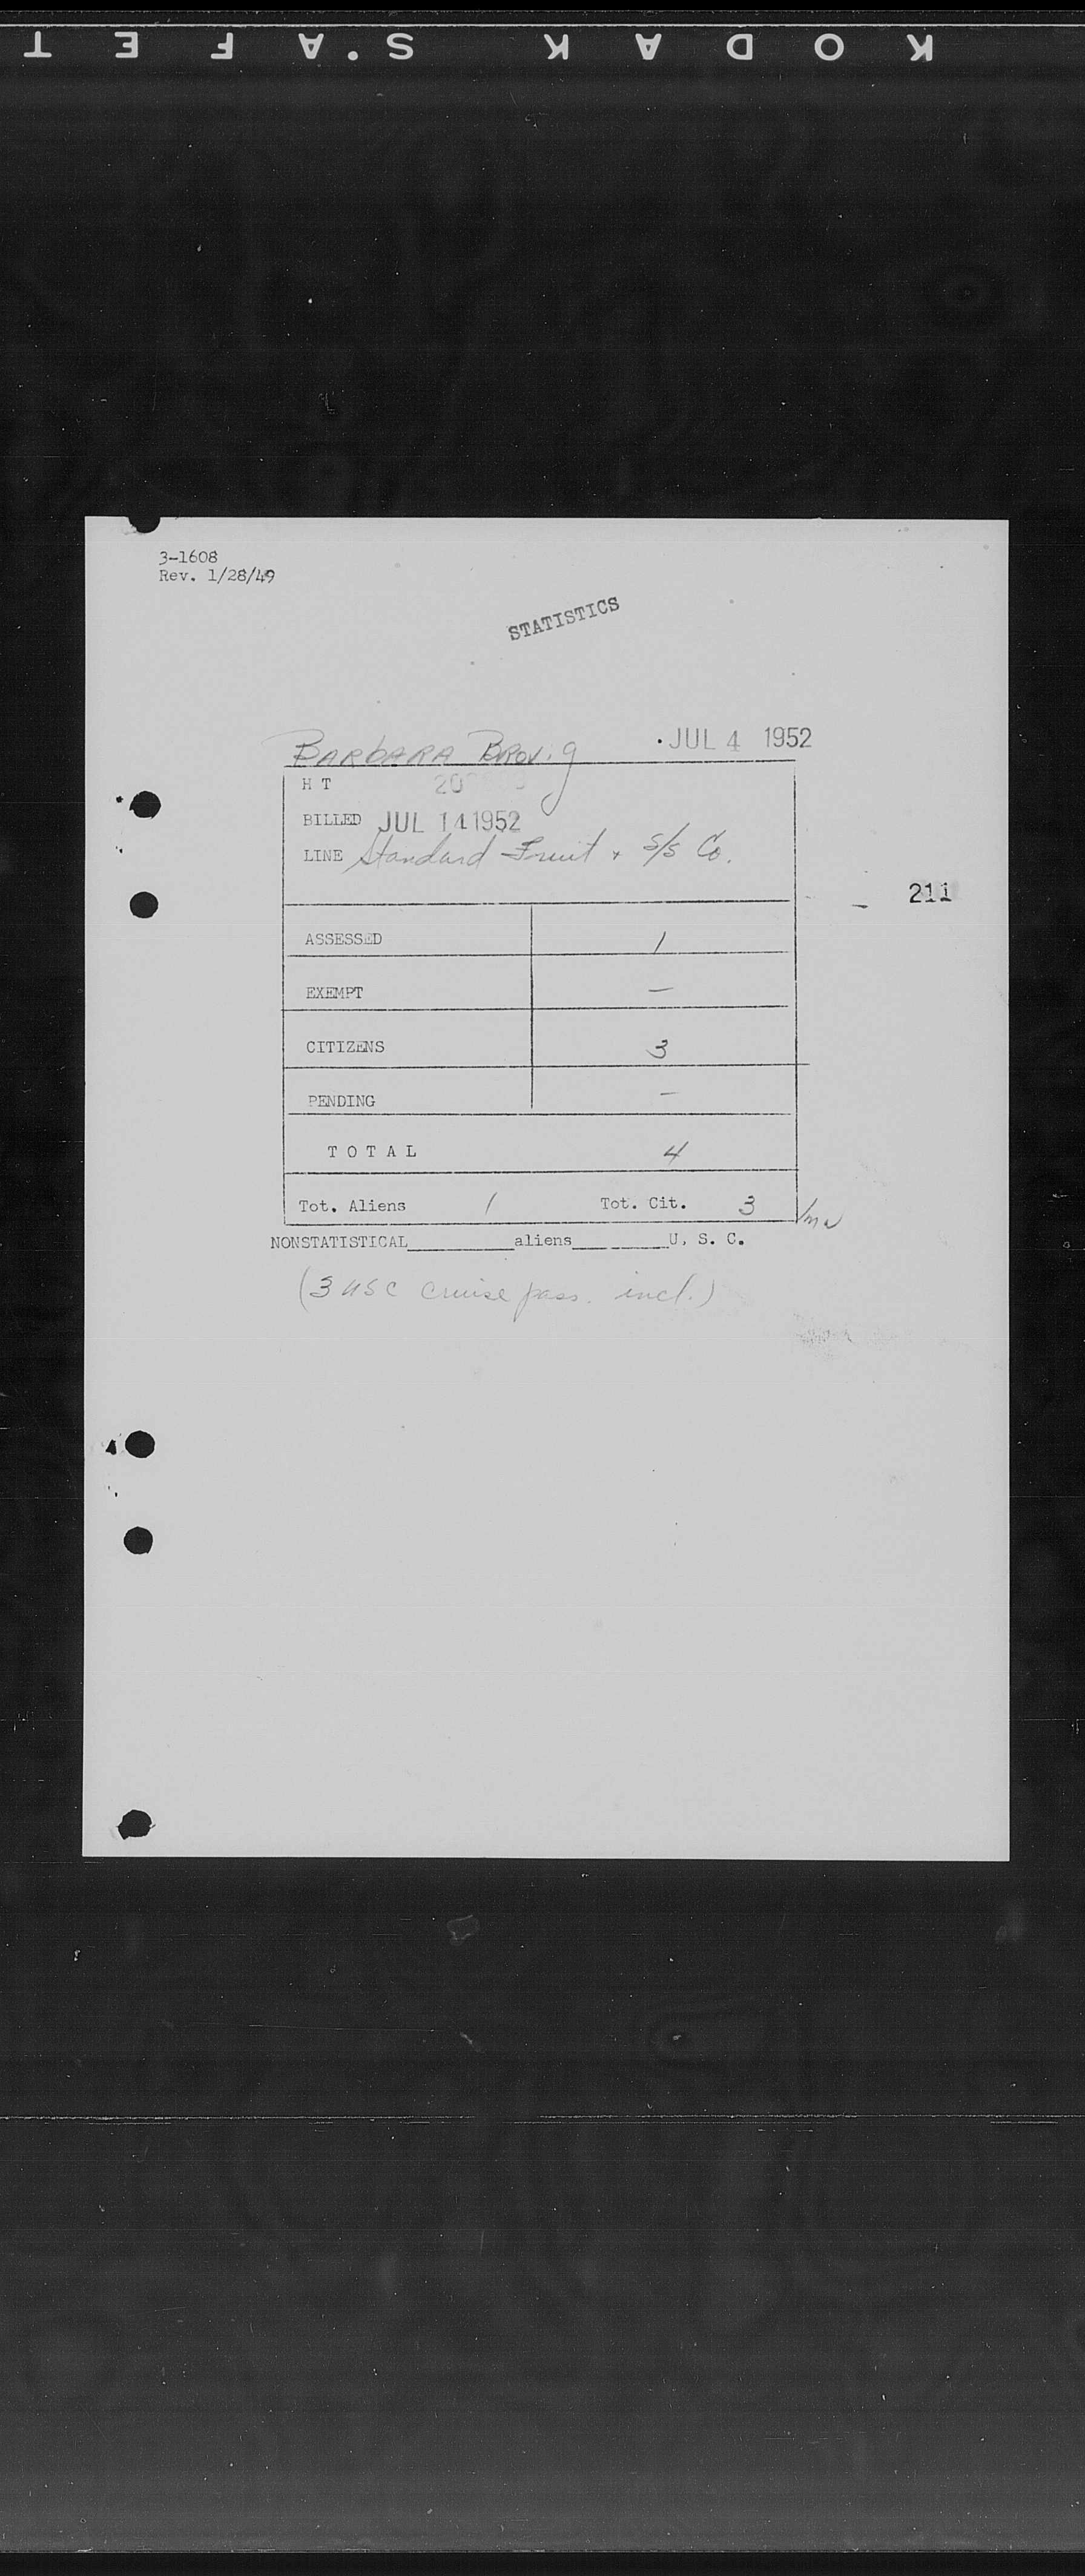 KODAK S.A.F.E.T
3-1608
Rev. 1/28/49
STATISTICS
BARBARA BROVIG JUL 4 1952
H T
BILLED JUL 14 1952
LINE Standard Fruit + S/S Co.
211
ASSESSED 1
EXEMPT —
CITIZENS 3
PENDING —
TOTAL 4
Tot. Aliens 1 Tot. Cit. 3
NONSTATISTICAL__________aliens__________U. S. C.
(3 USC cruise pass. incl.)